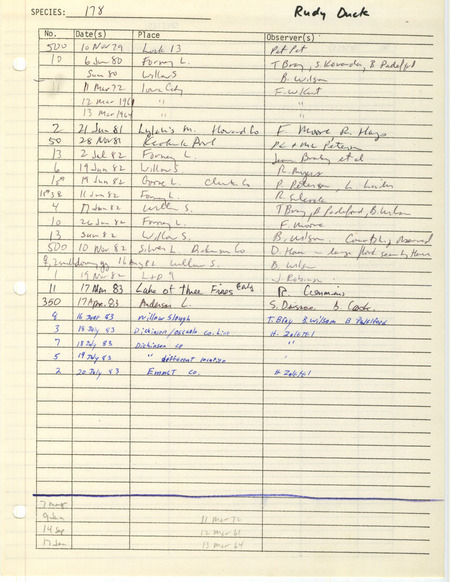 SPECIES: 178 Rudy Duck
No. Date(s) Place Observer(s)
500 10 Nov 79 Lock 13 Pet Pet
10 6 Jun 80 Forney L. T Bray, S Kovanda, B Padelford
Jun 80 Willow S B. Wilson
11 Mar 72 Iowa City F. W Kent
12 Mar 1961 " "
13 Mar 1964 " "
2 21 Jun 81 M. Howard Co F. Moore R. Hays
50 28 Nov 81 P C & M C Petersen
13 2 Jul 82 Forney L. et al
8 19 Jun 82 Willow S R. Myers
19 Jun 82 Goose L. Clinton Co P. Petersen, L.
11 Jun 82 Forney L. R. Silcock
4 17 Jun 82 Willow S. T Bray, B Padelford, B. Wilson
10 26 Jun 82 Forney L. F. Moore
13 Jun 82 Willow S. B. Wilson Courtship observed
500 10 Nov 82 Silver L Dickinson Co D. Howe - large flock seen by Howe
16 Aug 82 Willow S. B. Wilson
19 Nov 82 L+D 9 J. Robinson
11 17 Mar 83 Lake of Three Fires early R. Cummins
350 17 Apr. 83 Anderson L. S. Dinsmore B. Cook
9 16 June 83 Willow Slough T. Bray B Wilson B Padelford
3 18 July 83 Dickinson/Osceola co. line H. Zaletel
7 18 July 83 Dickinson co "
5 19 July 83 " different location "
2 20 July 83 Emmet co. H Zaletel
7 May
9 Jun 11 Mar 72
14 Sep 12 Mar 61
17 Jan 13 Mar 64